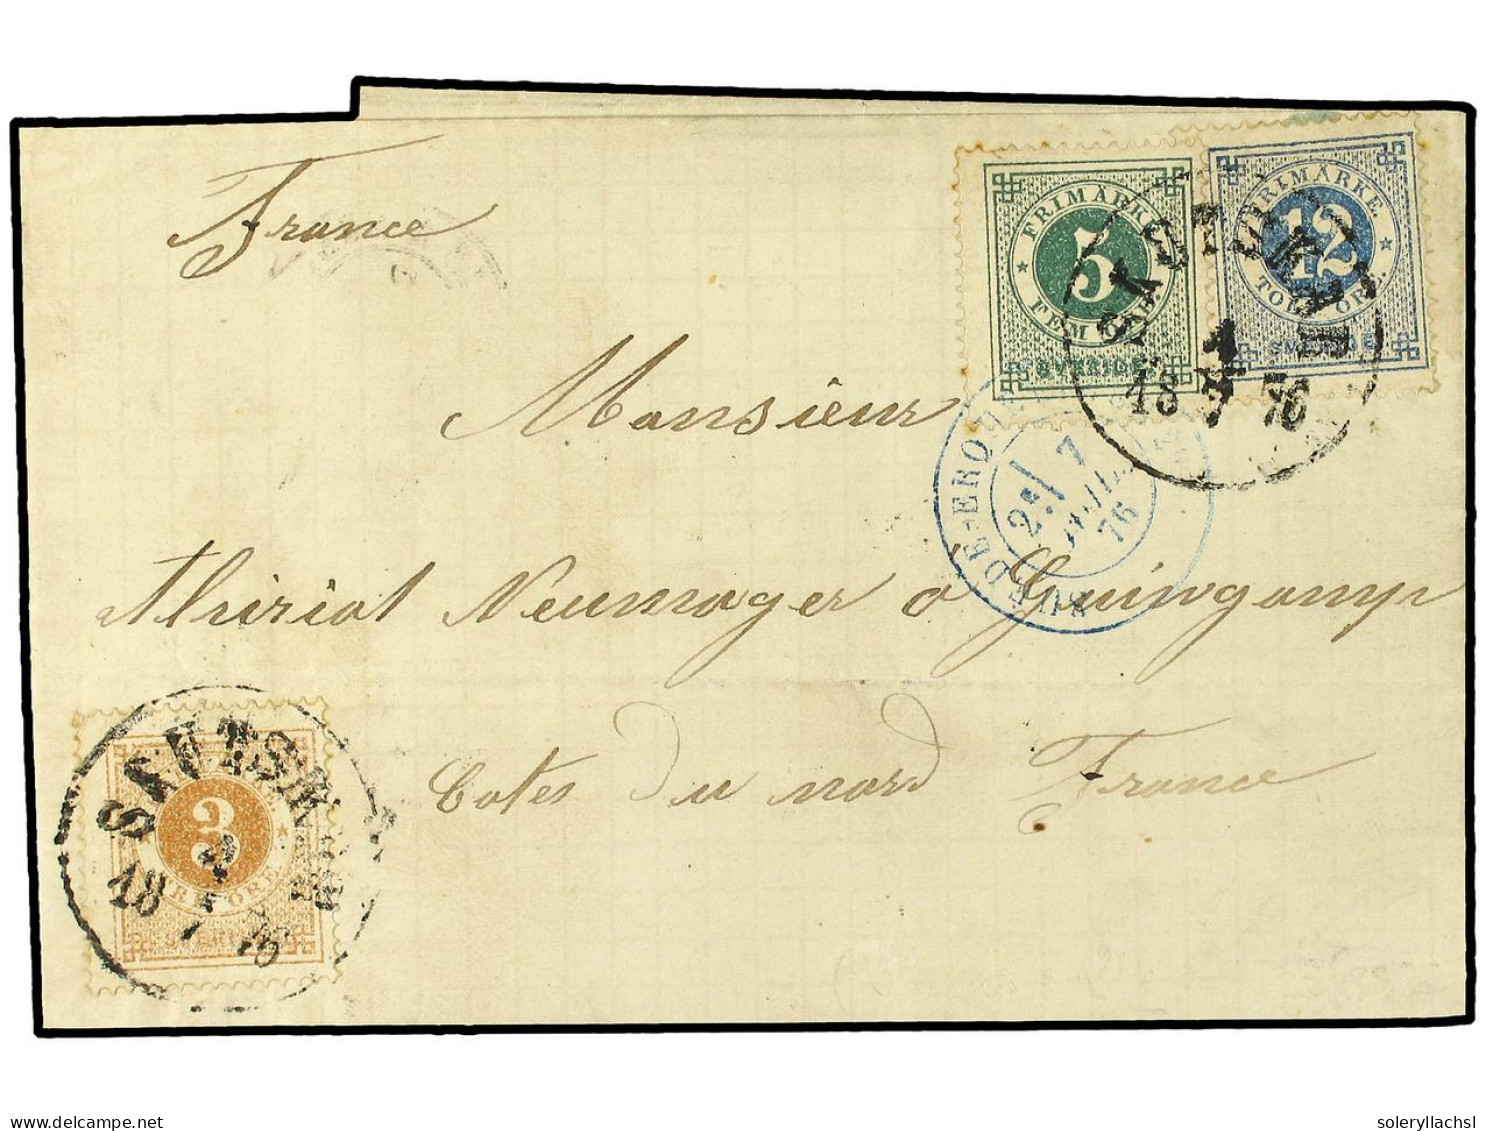 France
FRIMÄRKE
5
FEM ÖRE
SVERIGE
FRIMÄRKE
12
TOLF ÖRE
SVERIGE
4
18 7 76
Monsieur
SUÈDE-ERQ
2E/ 7
JUIL
76
Thiriot Neumager à Guingamp
Cotes Du nord France
3
TRE ÖRE
SVERIGE
18 7 76
delcampe.net
soleryllachsl